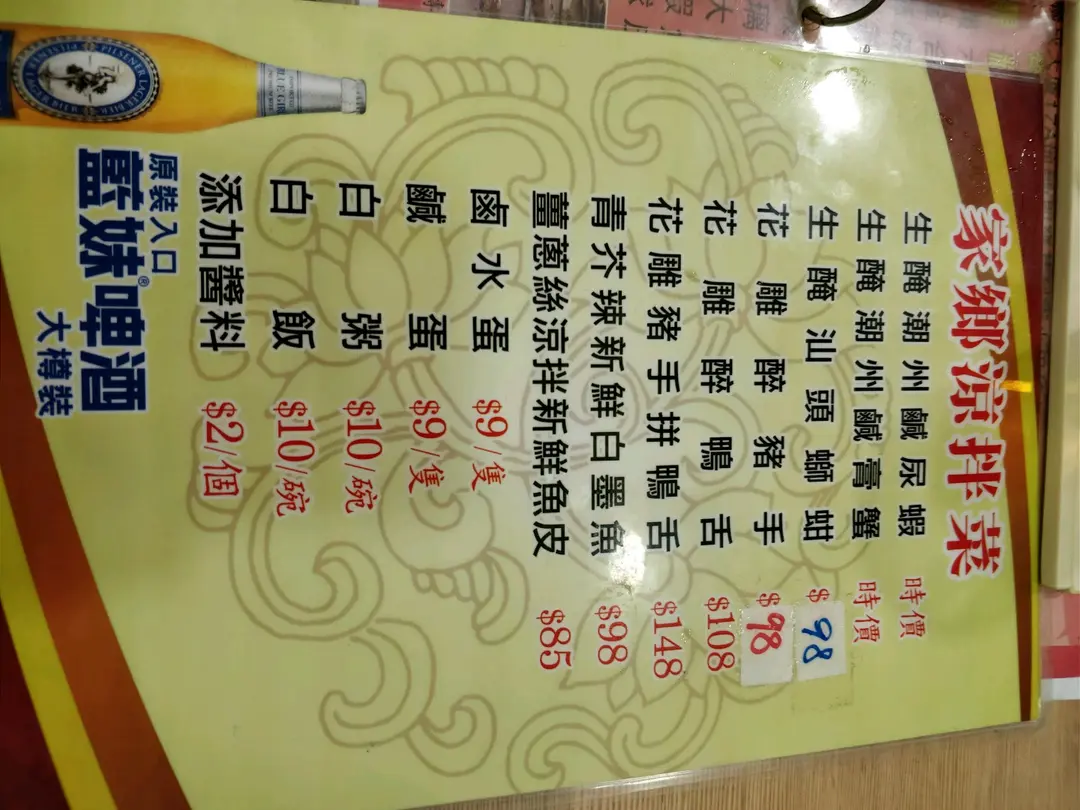 家鄉涼拌菜
生醃潮州鹹尿蝦 時價
生醃潮州鹹膏蟹 時價
生醃汕頭螄蚶 $98
花雕醉豬手 $98
花雕醉鴨舌 $108
花雕豬手拼鴨舌 $148
青芥辣新鮮白墨魚 $98
薑蔥絲涼拌新鮮魚皮 $85
鹵水蛋 $9/隻
鹹蛋 $9/隻
白粥 $10/碗
白飯 $10/碗
添加醬料 $2/個
原裝入口
藍妹®啤酒
大樽裝
PILSENER LAGER BIER
BLUE GIRL